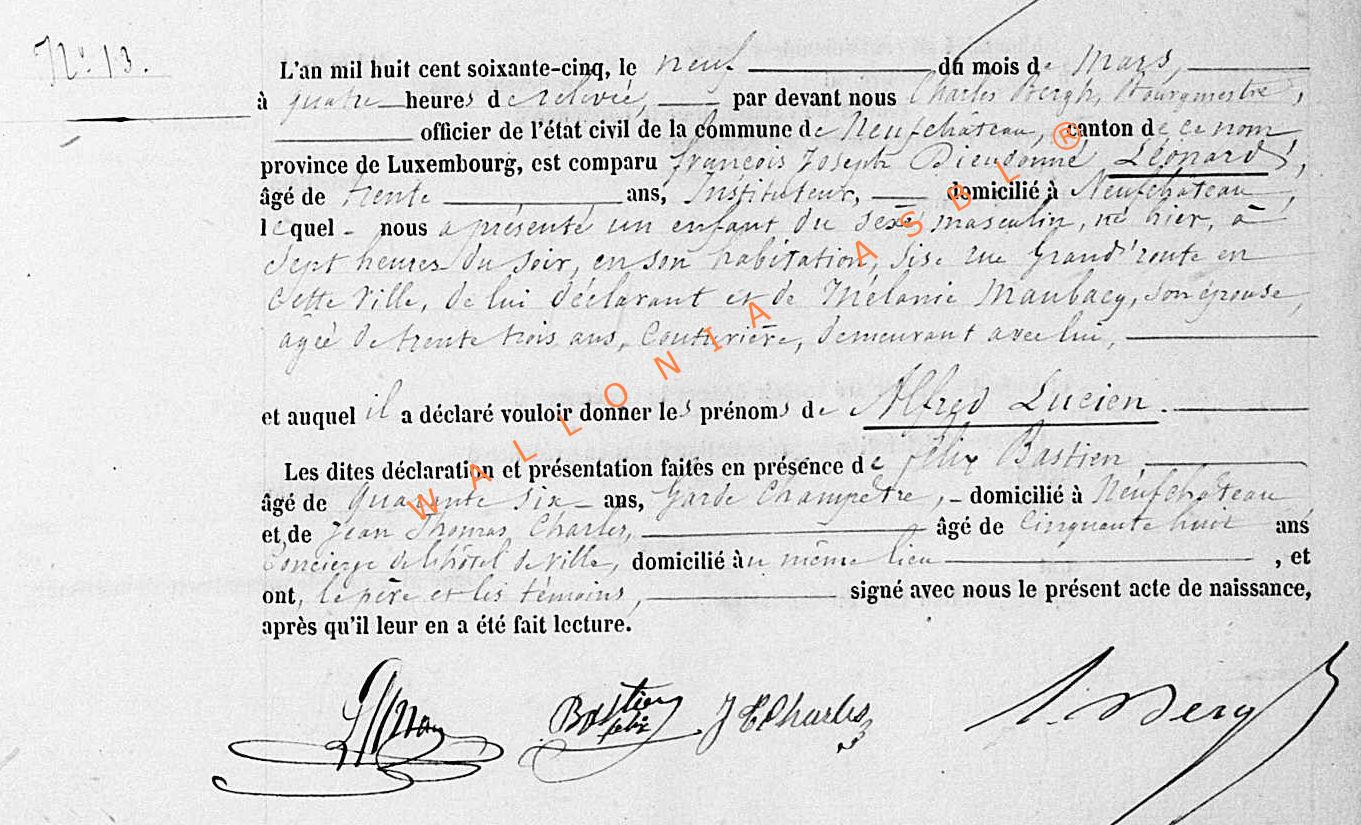 N° 13.
L'an mil huit cent soixante-cinq, le neuf du mois de Mars,
à quatre heures de relevée, par devant nous Charles Bergh, Bourgmestre,
officier de l'état civil de la commune de Neufchâteau, canton de ce nom
province de Luxembourg, est comparu françois Joseph Dieudonné Léonard,
âgé de trente ans, Instituteur, domicilié à Neufchâteau,
lequel nous a présenté un enfant du sexe masculin, né hier, à
sept heures du soir, en son habitation, sise rue Grand'route en
cette ville, de lui déclarant et de Mélanie Maubacq, son épouse,
agée de trente trois ans, Couturière, demeurant avec lui,
et auquel il a déclaré vouloir donner les prénoms de Alfred Lucien.
Les dites déclaration et présentation faites en présence de félix Bastien,
âgé de quarante six ans, Garde Champêtre, domicilié à Neufchâteau
et de Jean Thomas Charles, âgé de Cinquante huit ans
Concierge de l'hôtel de ville, domicilié au même lieu, et
ont, le père et les témoins, signé avec nous le présent acte de naissance,
après qu'il leur en a été fait lecture.
Bastien felix J T Charles
WALLONIA ASBL ®